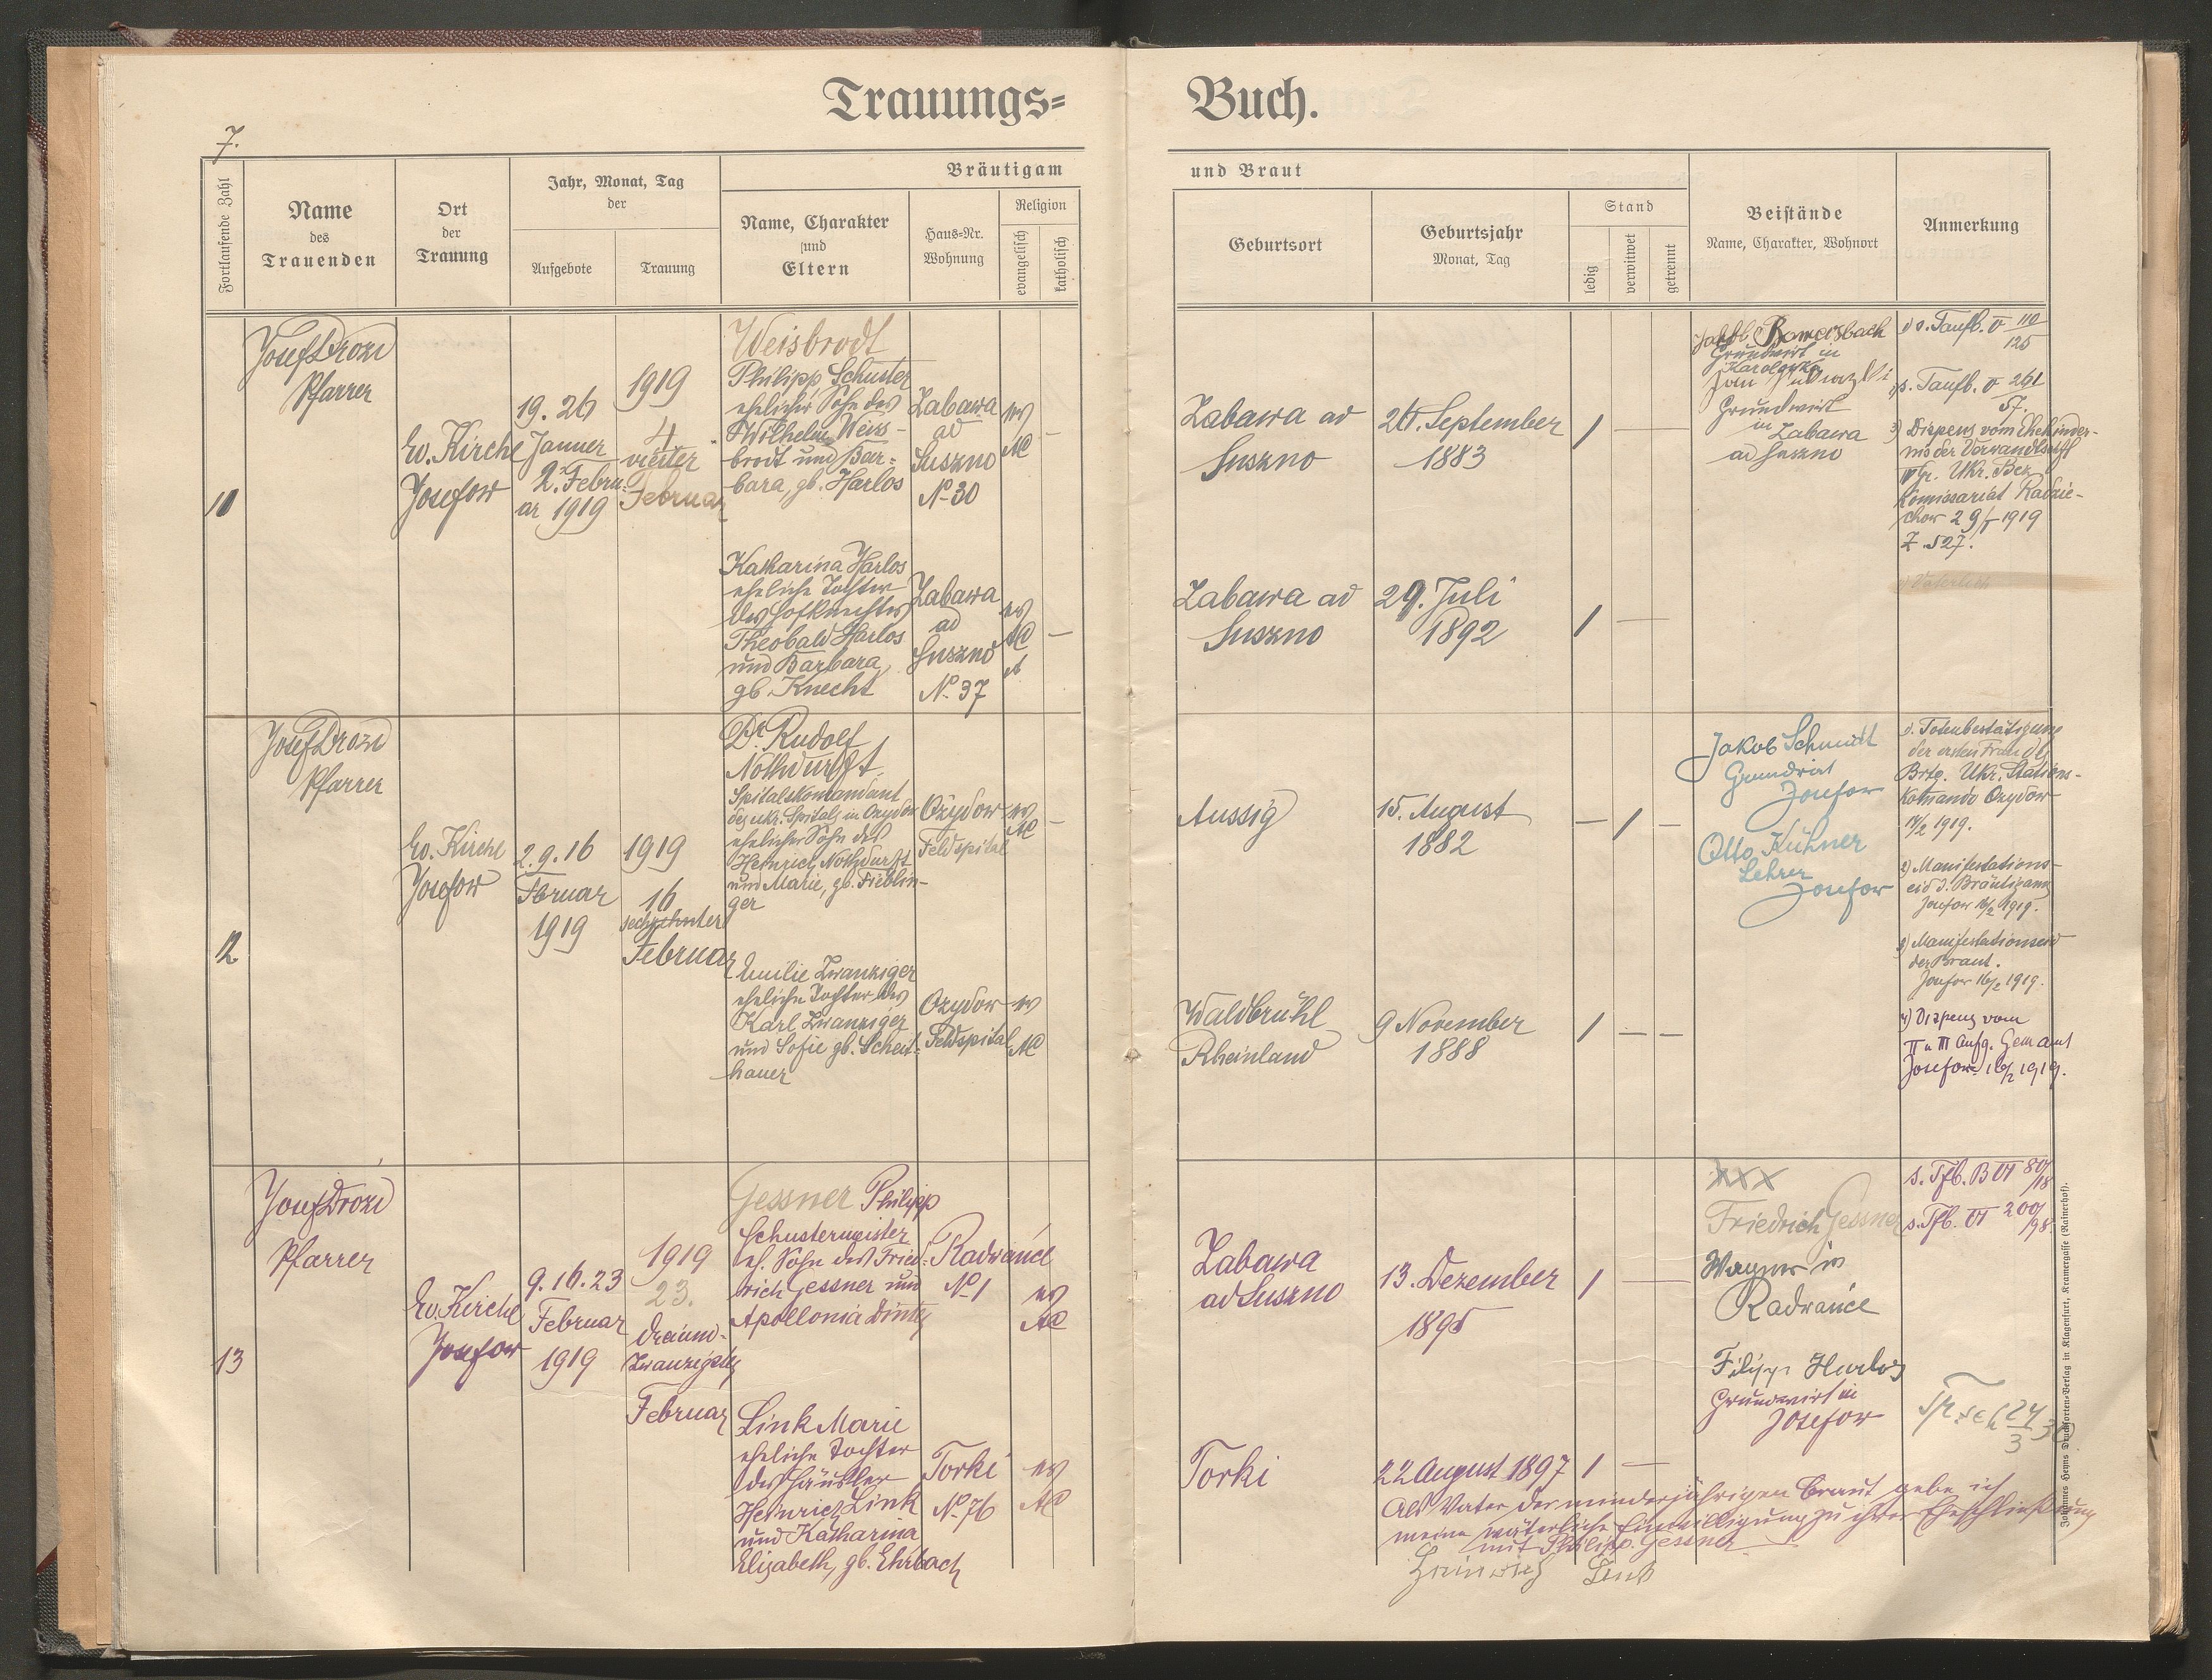 Trauungs-
Buch.
7.
Fortlaufende Zahl
Name
des
Trauenden
Ort
der
Trauung
Jahr, Monat, Tag
der
Aufgebote
Trauung
Bräutigam
Name, Charakter
und
Eltern
Haus-Nr.
Wohnung
Religion
evangelisch
katholisch
und Braut
Geburtsort
Geburtsjahr
Monat, Tag
Stand
ledig
verwitwet
getrennt
Beistände
Name, Charakter, Wohnort
Anmerkung
11
Josef Drozd
Pfarrer
Ev. Kirche
Josefow
19. 26
Janner
2. Febru-
ar 1919
1919
4.
vierter
Februar
Weisbrodt
Philipp, Schuster
ehelicher Sohn des
Wilhelm Weiss-
brodt und Bar-
bara, gb. Harlos
Zabawa
ad
Suszno
No 30
ev
AC
Katharina Harlos
eheliche Tochter
des Hofknechtes
Theobald Harlos
und Barbara,
gb. Knecht
Zabawa
ad
Suszno
No. 37
ev
AC
Zabawa ad
Suszno
26. September
1883
Zabawa ad
Suszno
29. Juli
1892
Jakob
Grundwirt in
Karolówka
Jan
Grundwirt
in Zabawa
ad Suszno
Taufb. V 110/125
Taufb. V 261/57.
3) Dispens vom Ehehinder-
nis der Verwandtschaft
IV Gr. Ukr. Bez
Komissariat Radzie-
chow 29/I 1919
Z. 527.
12
Josef Drozd
Pfarrer
Ev. Kirche
Josefow
2. 9. 16
Februar
1919
1919
16
sechzehnter
Februar
Dr Rudolf
Nothdurft
Spitalskomandant
des ukr. Spitals in Ozydow
ehelicher Sohn des
Heinrich Nothdurft
und Marie, gb. Fieblin-
ger
Ozydow
Feldspital
ev
AC
Emilie Zwanziger
eheliche Tochter des
Karl Zwanziger
und Sofie gb. Scheit-
hauer
Ozydow
Feldspital
ev
AC
Aussig
15. August
1882
Waldbrühl
Rheinland
9 November
1888
Jakob Schmidt
Grundwirt
Josefow
Otto Kühner
Lehrer
Josefow
1). Totenbestätigung
der ersten Frau des
Brtg. Ukr. Stations-
Komando Ozydow
14/2 1919.
2) Manifestations-
eid d. Bräutigams
Josefow 16/2 1919.
3) Manifestationseid
der Braut.
Josefow 16/2 1919.
4) Dispens vom
II u III Aufg. Gem amt
Josefow 16/2 1919.
13
Josef Drozd
Pfarrer
Ev. Kirche
Josefow
9. 16. 23
Februar
1919
1919
23.
dreiund-
zwanzigster
Februar
Gessner Philipp
Schustermeister
eh. Sohn des Fried-
rich Gessner und
Apollonia
Radwańce
No 1
ev
AC
Link Marie
eheliche Tochter
des Häusler
Heinrich Link
und Katharina
Elisabeth, gb. Ehrbach
Torki
No. 76
ev
AC
Zabawa
ad Suszno
13. Dezember
1895
Torki
22 August 1897
xxx
Friedrich Gessner
Wagner in
Radwańce
Filipp Harlos
Grundwirt in
Josefow
s. Tfb. B VI 80/18
s. Tfb. VI 200/98.
24/3 38.
Als Vater der minderjährigen Braut gebe ich
meine väterliche Einwilligung zu ihrer Eheschließung
mit Philipp Gessner
Heinrich Link
Johannes Heyns Drucksorten-Verlag in Klagenfurt, Kramergasse (Rainerhof).